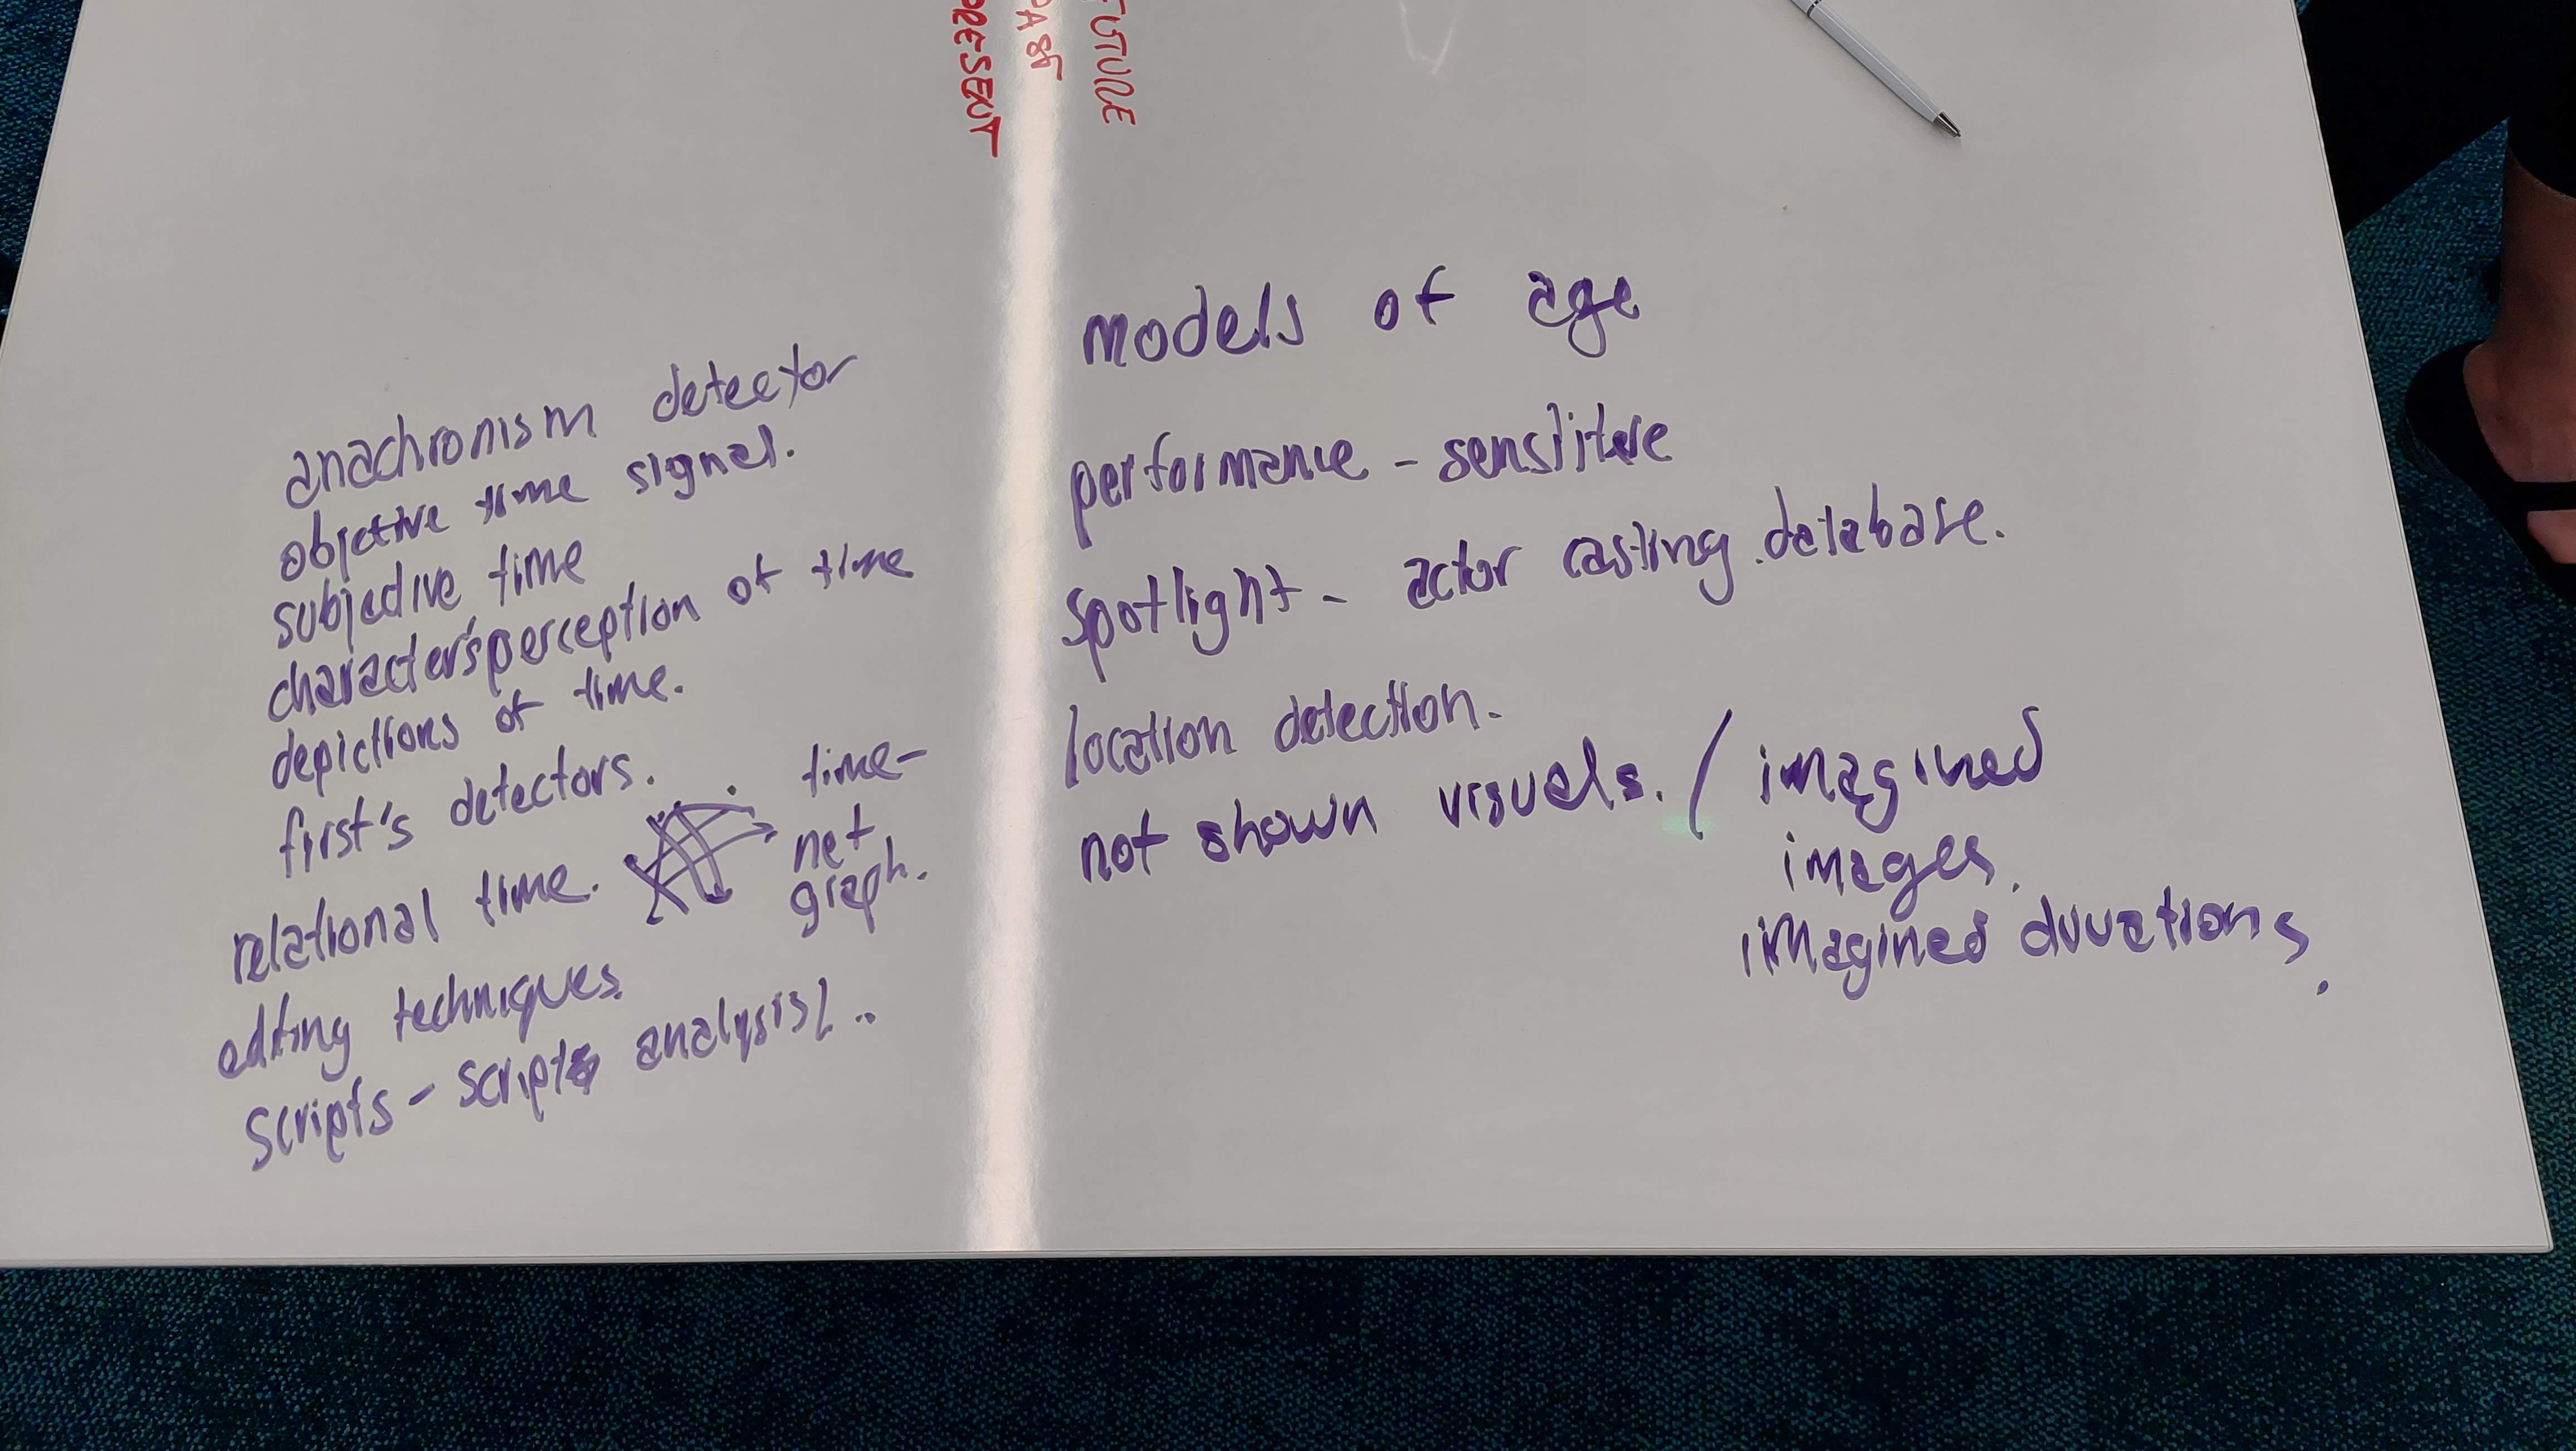 PRESENT
PAST
FUTURE
anachronism detector
objective time signal.
subjective time
character's perception of time
depictions of time.
first's detectors.
relational time.
time-
net
graph.
editing techniques.
scripts - scripts analysis/..
models of age
performance - sensitive
spotlight - actor casting database.
location detection.
not shown visuals. / imagined
images.
imagined durations.